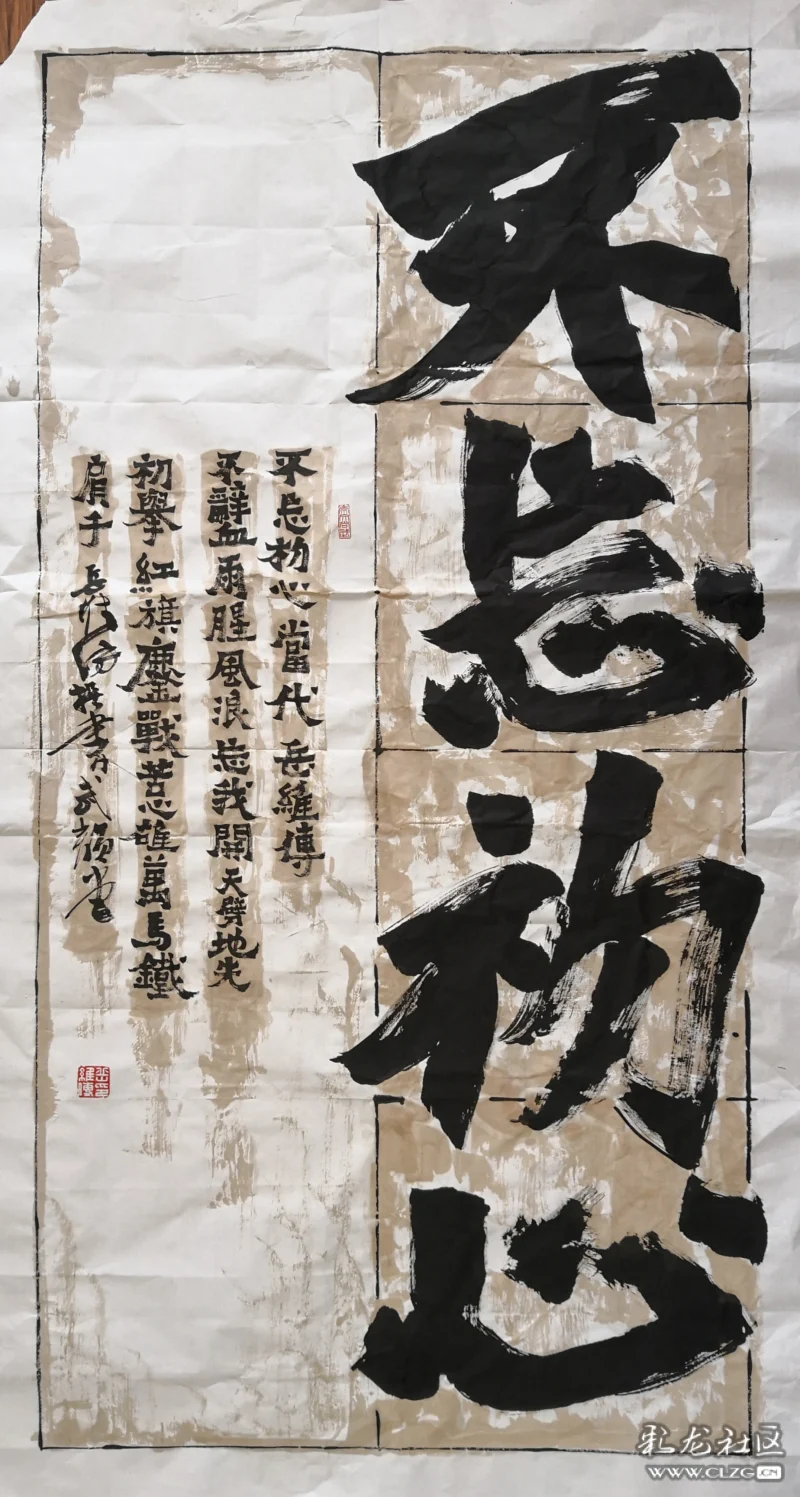 不忘初心
不忘初心當代岳維傳
不辭血雨腥風浪忘我開天劈地先
初舉紅旗鏖戰苦心雄萬馬鐵
肩千岳維傳撰書
彩龙社区
WWW.CLZG.CN